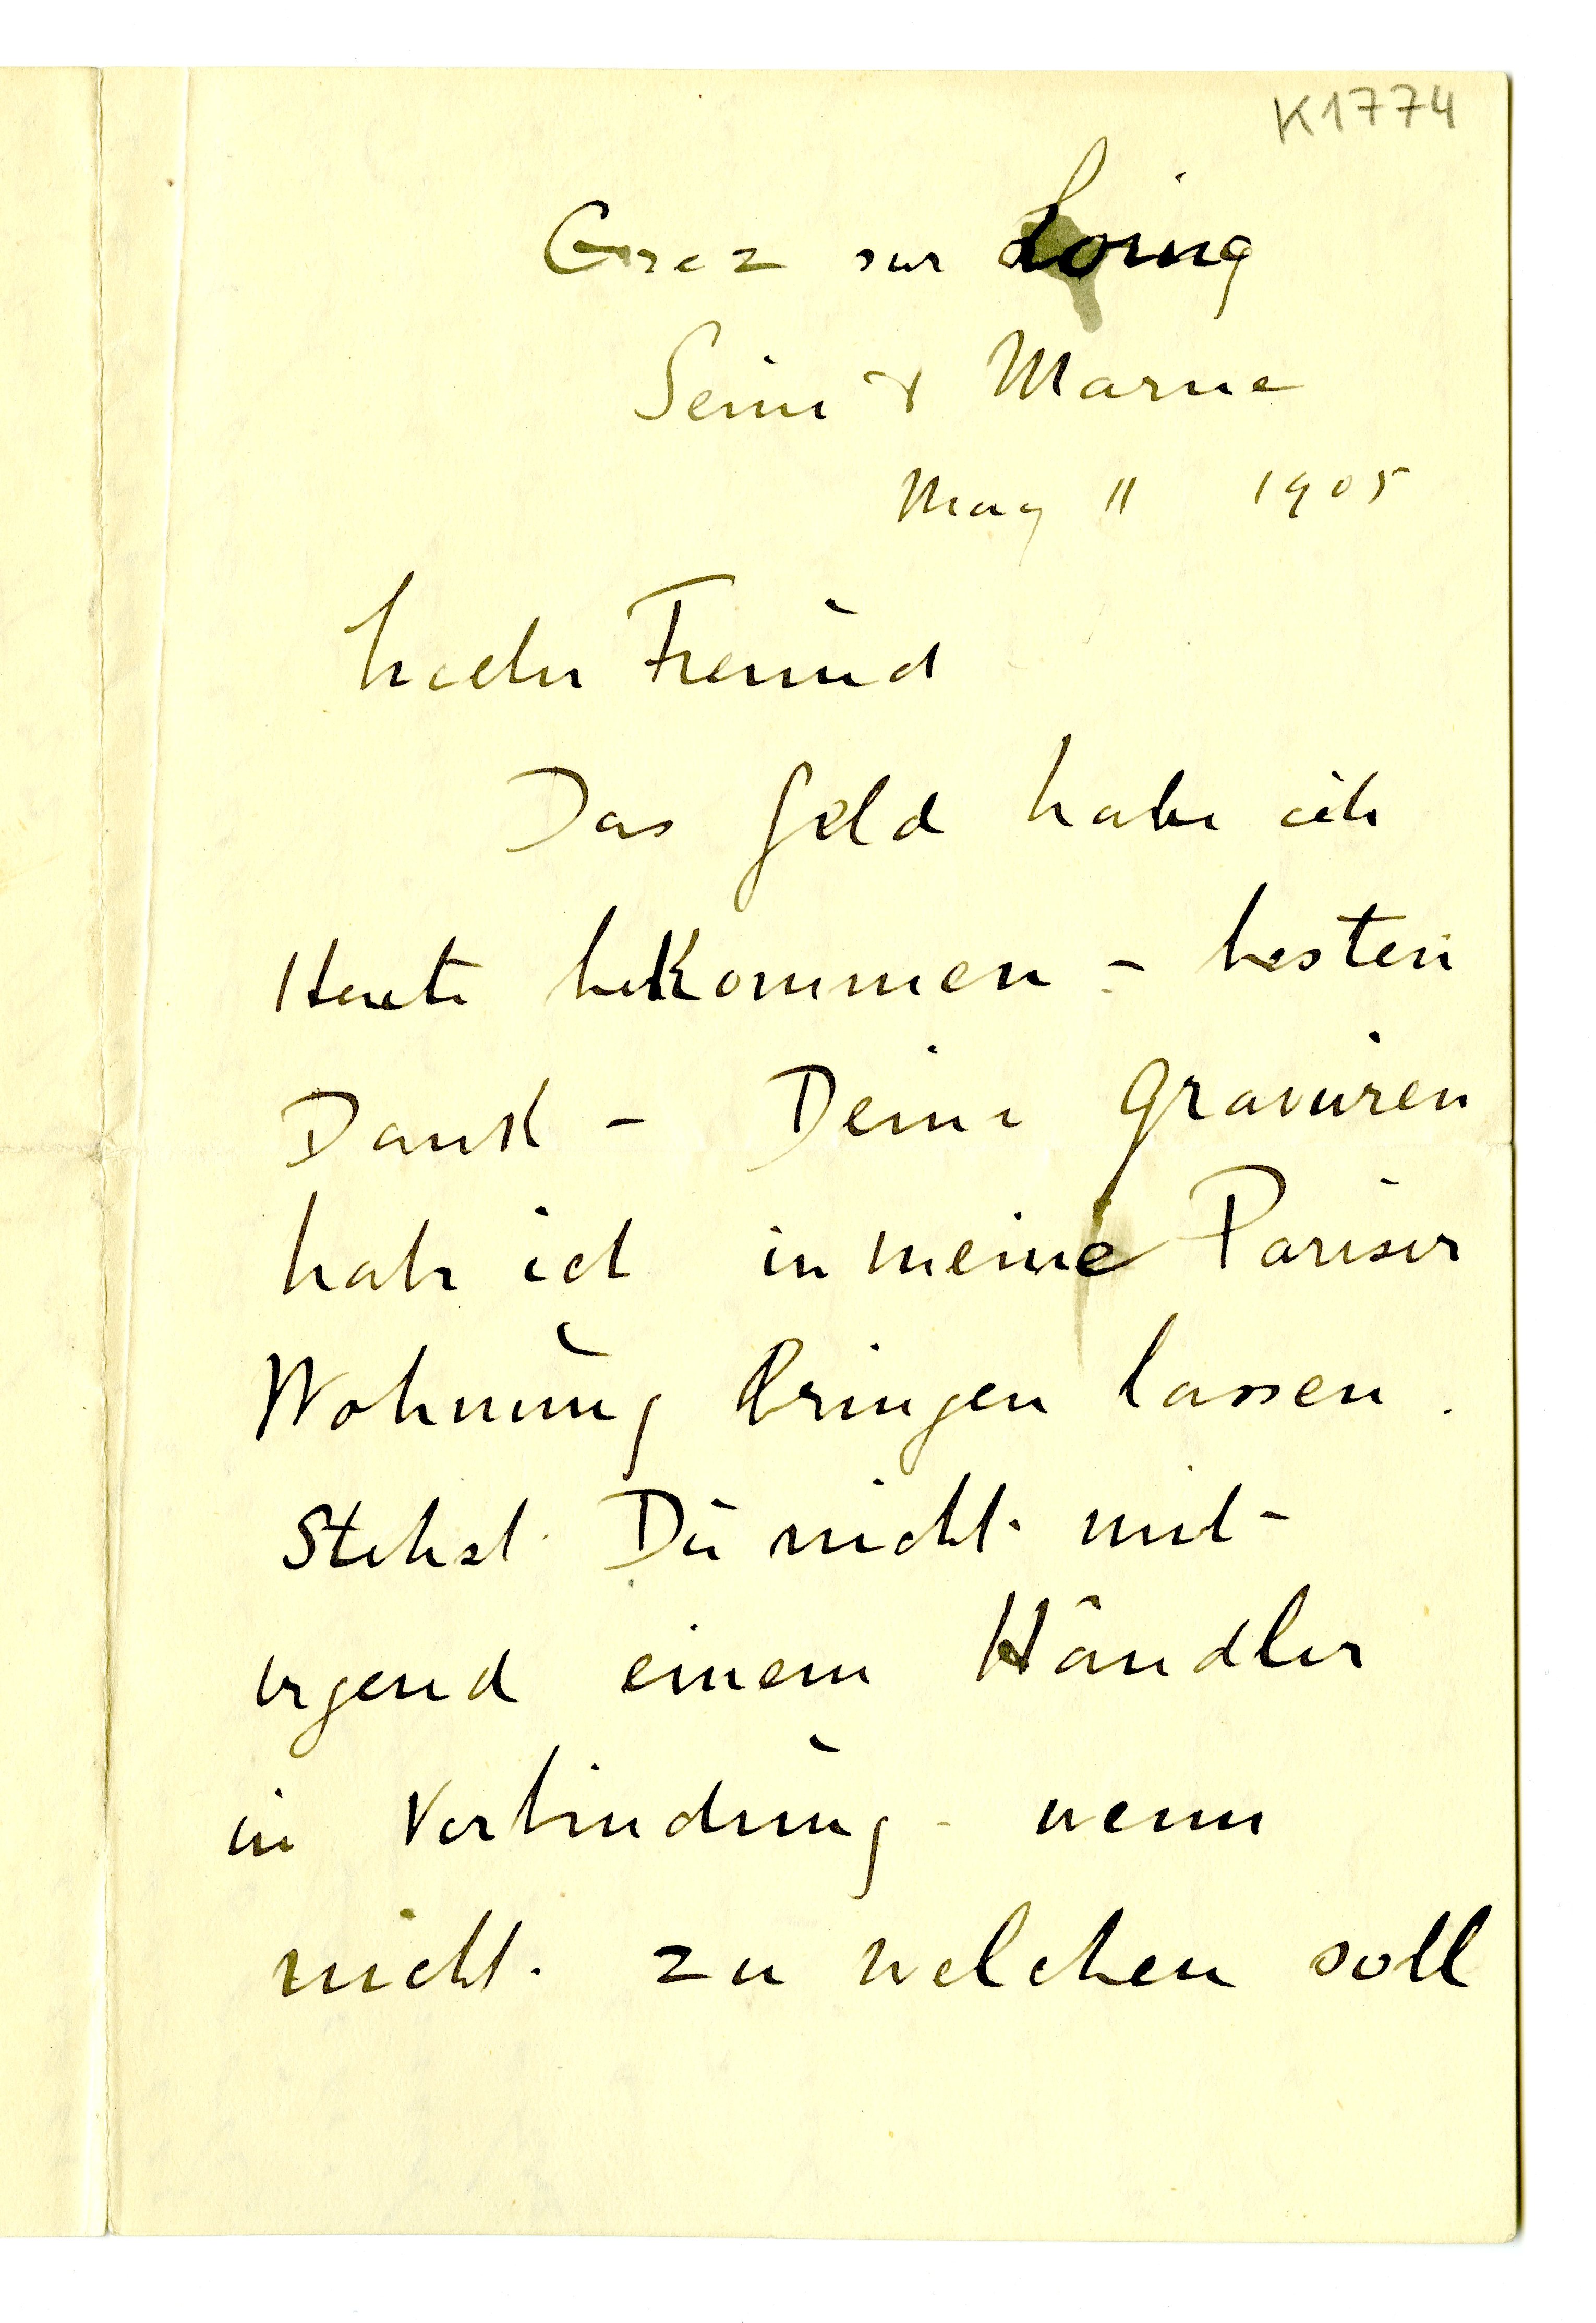 K1774
Grez sur Loing
Seine & Marne
May 11 1905
Lieber Freund
Das Geld habe ich
Heute bekommen – besten
Dank – Deine Gravuren
habe ich in meine Pariser
Wohnung bringen lassen.
Stehst Du nicht mit
irgend einem Händler
in Verbindung – wenn
nicht. zu welchen soll